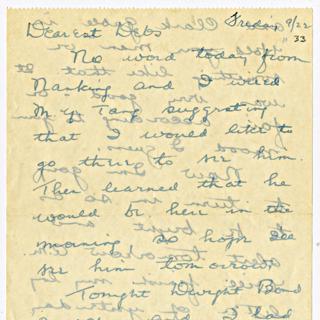 Friday 9/22
" 33
Dearest Debs
No word today from
Nanking and I wired
M. Y. Tang suggesting
that I would like to
go thru to see him.
Then learned that he
would be here in the
morning so hope
see him tomorrow
Tonight Dwight Bond
and I had